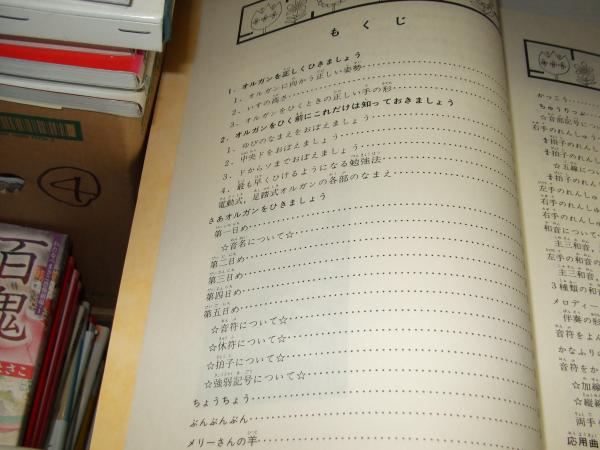 もくじ
1. オルガンを正しくひきましょう
1. オルガンに向かう正しい姿勢
2. いすの高さ
3. オルガンをひくときの正しい手の形
2. オルガンをひく前にこれだけは知っておきましょう
1. ゆびのなまえをおぼえましょう
2. 中央ドをおぼえましょう
3. ドからソまでおぼえましょう
4. 最も早くひけるようになる勉強法
電動式，足踏式オルガンの各部のなまえ
さあオルガンをひきましょう
第一日め
☆音名について☆
第二日め
第三日め
第四日め
第五日め
☆音符について☆
☆休符について☆
☆拍子について☆
☆強弱記号について☆
ちょうちょう
ぶんぶんぶん
メリーさんの羊
かっこう
ちゅうりっぷ
☆音部記号につ
右手のれんしゅ
拍子のれん
拍子のれん
☆五線につ
拍子のれん
左手のれんしゅ
右手のれんし
右手のれん
和音について
主三和音，
左手の和音の
主三和音，
3種類の和
メロディー
伴奏の形
音符をよん
かなふりの
音符をか
☆加線
☆縦線
両手
応用曲
4
百鬼